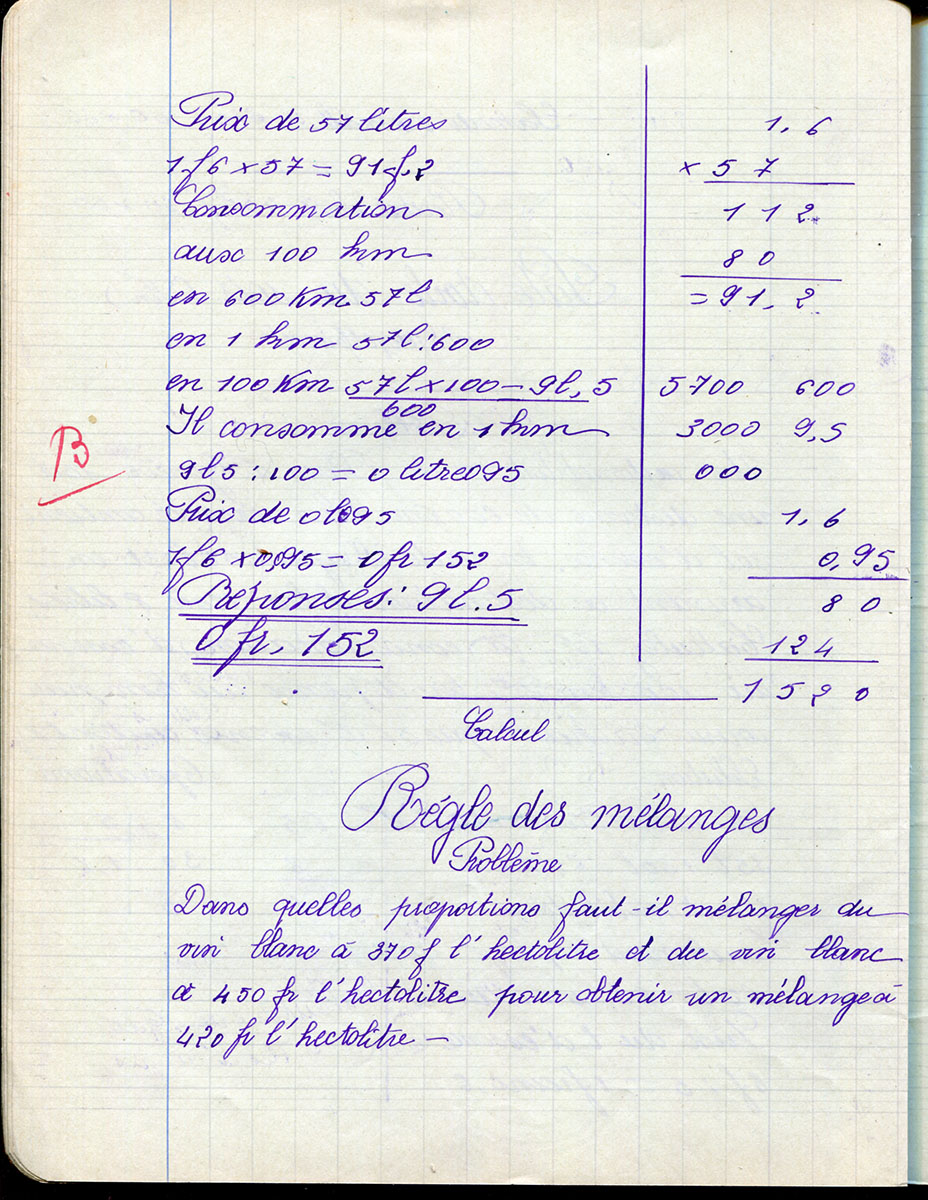 Prix de 57 litres
1f6 × 57 = 91f,2
Consommation
aux 100 km
en 600 Km 57l
en 1 km 57l:600
en 100 Km 57l × 100 = 9l,5
600
Il consomme en 1 km
9l5 : 100 = 0 litre095
Prix de 0l095
1f6 × 0,095 = 0fr 152
Réponses: 9l.5
0 fr, 152
1,6
× 57
112
80
= 91,2
5700 600
3000 9,5
000
1,6
0,95
80
124
1520
B
Calcul
Régle des mélanges
Problème
Dans quelles proportions faut-il mélanger du
vin blanc à 370f l'hectolitre et du vin blanc
à 450 fr l'hectolitre pour obtenir un mélange à
420 fr l'hectolitre —